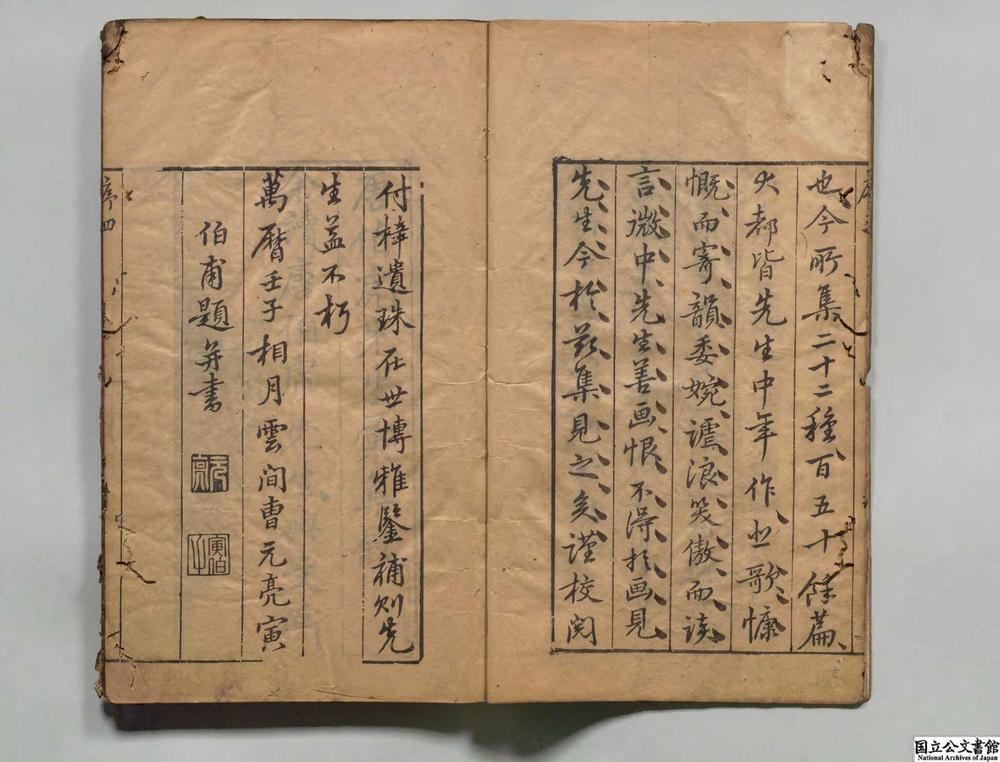 也今所集二十二種百五十餘篇
大都皆先生中年作悲歌慷
慨而寄韻委婉謔浪笑傲而談
言微中先生善画恨不得於画見
先生今於茲集見之矣謹校閱
付梓遺珠在世博雅鑒補則先
生益不朽
萬曆壬子相月雲間曹元亮寅
伯甫題并書
元亮
寅伯
序四
国立公文書館
National Archives of Japan